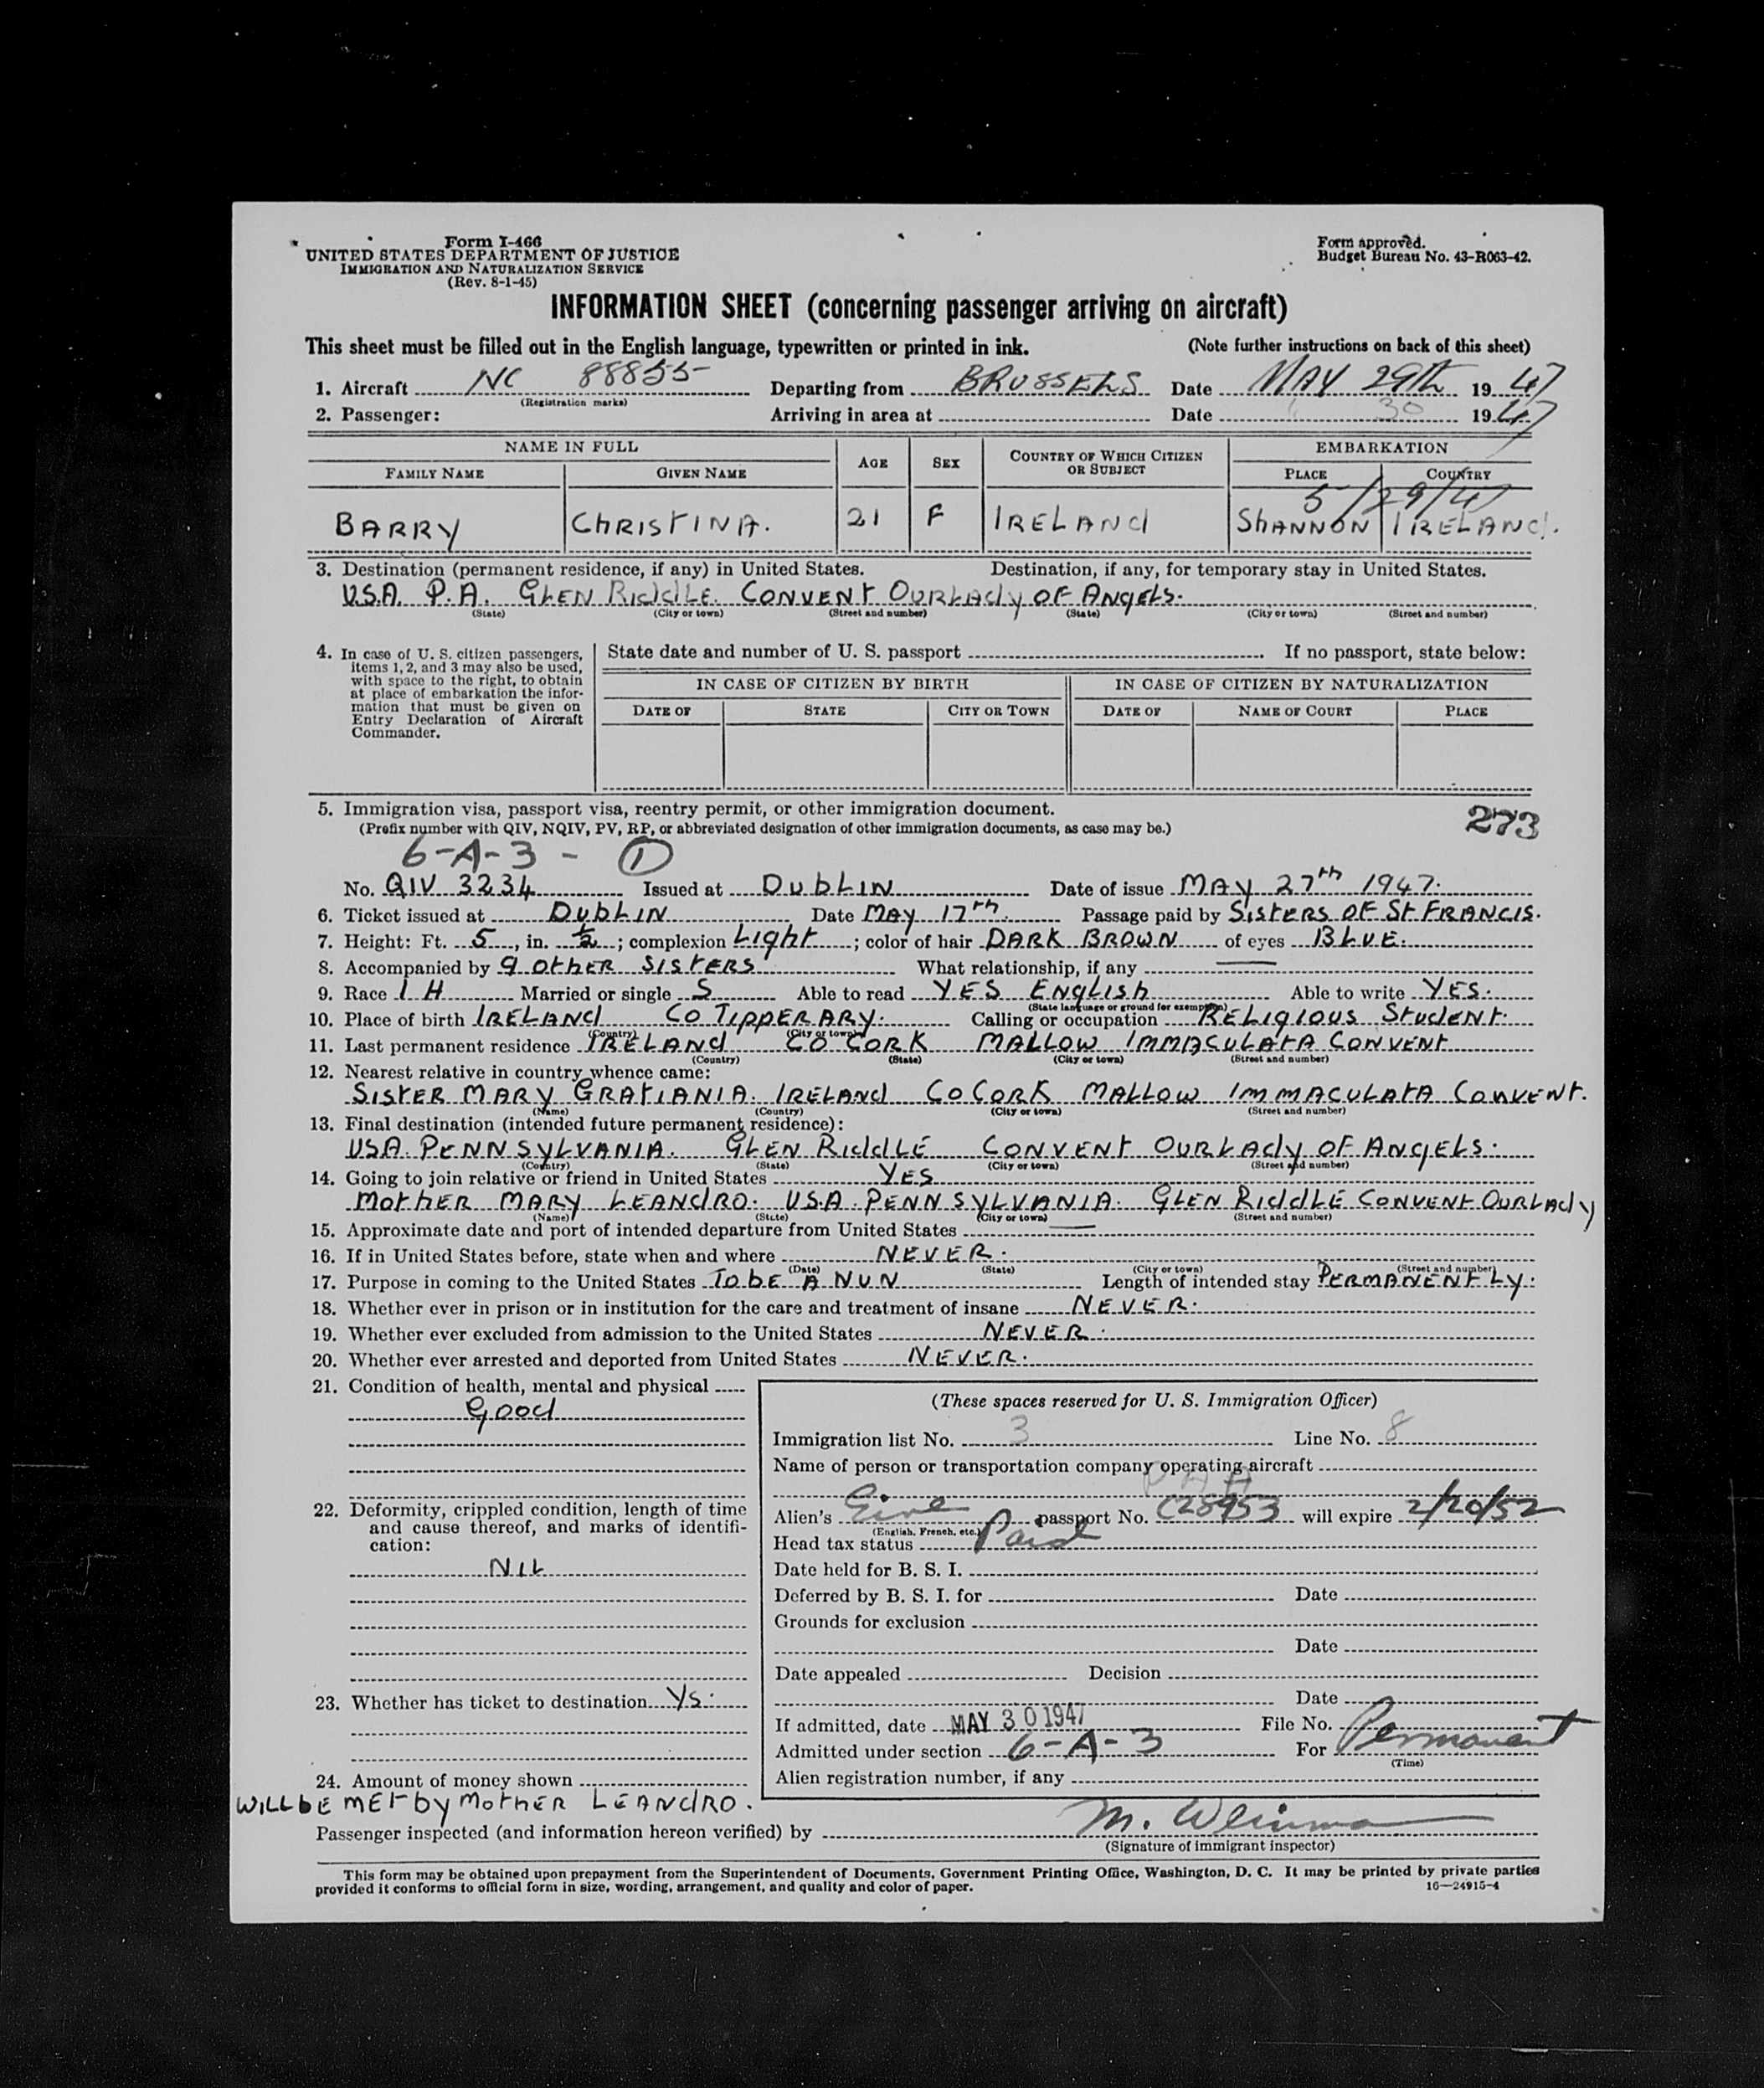 Form I-466
UNITED STATES DEPARTMENT OF JUSTICE
IMMIGRATION AND NATURALIZATION SERVICE
(Rev. 8-1-45)
Form approved.
Budget Bureau No. 43-R063-42.
INFORMATION SHEET (concerning passenger arriving on aircraft)
This sheet must be filled out in the English language, typewritten or printed in ink. (Note further instructions on back of this sheet)
1. Aircraft NC 88855 Departing from BRUSSELS Date MAY 29th 1947
(Registration marks)
2. Passenger: Arriving in area at Date " 30 1947
NAME IN FULL AGE SEX COUNTRY OF WHICH CITIZEN OR SUBJECT EMBARKATION
FAMILY NAME GIVEN NAME PLACE COUNTRY
5/29/47
BARRY CHRISTINA. 21 F IRELAND SHANNON IRELAND.
3. Destination (permanent residence, if any) in United States. Destination, if any, for temporary stay in United States.
U.S.A. P.A. GLEN RIDDLE. CONVENT OUR LADY OF ANGELS.
(State) (City or town) (Street and number) (State) (City or town) (Street and number)
4. In case of U. S. citizen passengers, items 1, 2, and 3 may also be used, with space to the right, to obtain at place of embarkation the information that must be given on Entry Declaration of Aircraft Commander.
State date and number of U. S. passport If no passport, state below:
IN CASE OF CITIZEN BY BIRTH IN CASE OF CITIZEN BY NATURALIZATION
DATE OF STATE CITY OR TOWN DATE OF NAME OF COURT PLACE
5. Immigration visa, passport visa, reentry permit, or other immigration document. 273
(Prefix number with QIV, NQIV, PV, RP, or abbreviated designation of other immigration documents, as case may be.)
6-A-3 - 1
No. QIV 3234 Issued at DUBLIN Date of issue MAY 27th 1947.
6. Ticket issued at DUBLIN Date MAY 17th. Passage paid by SISTERS OF ST FRANCIS.
7. Height: Ft. 5, in. ½; complexion LIGHT; color of hair DARK BROWN of eyes BLUE.
8. Accompanied by 9 OTHER SISTERS What relationship, if any —
9. Race I H Married or single S Able to read YES ENGLISH Able to write YES.
(State language or ground for exemption)
10. Place of birth IRELAND CO TIPPERARY. Calling or occupation RELIGIOUS STUDENT.
(Country) (City or town)
11. Last permanent residence IRELAND CO CORK MALLOW IMMACULATA CONVENT
(Country) (State) (City or town) (Street and number)
12. Nearest relative in country whence came:
SISTER MARY GRATIANIA. IRELAND CO CORK MALLOW IMMACULATA CONVENT.
(Name) (Country) (City or town) (Street and number)
13. Final destination (intended future permanent residence):
USA. PENNSYLVANIA. GLEN RIDDLE CONVENT OUR LADY OF ANGELS.
(Country) (State) (City or town) (Street and number)
14. Going to join relative or friend in United States YES
MOTHER MARY LEANDRO. U.S.A. PENNSYLVANIA. GLEN RIDDLE CONVENT OUR LADY
(Name) (State) (City or town) (Street and number)
15. Approximate date and port of intended departure from United States —
16. If in United States before, state when and where NEVER.
(Date) (State) (City or town) (Street and number)
17. Purpose in coming to the United States TO BE A NUN Length of intended stay PERMANENTLY.
18. Whether ever in prison or in institution for the care and treatment of insane NEVER.
19. Whether ever excluded from admission to the United States NEVER.
20. Whether ever arrested and deported from United States NEVER.
21. Condition of health, mental and physical
GOOD
22. Deformity, crippled condition, length of time and cause thereof, and marks of identification:
NIL
23. Whether has ticket to destination YS.
24. Amount of money shown
WILL BE MET BY MOTHER LEANDRO.
(These spaces reserved for U. S. Immigration Officer)
Immigration list No. 3 Line No. 8
Name of person or transportation company operating aircraft
PAA
Alien's Eire passport No. C28953 will expire 2/20/52
(English, French, etc.)
Head tax status Paid
Date held for B. S. I.
Deferred by B. S. I. for Date
Grounds for exclusion
Date
Date appealed Decision
Date
If admitted, date MAY 30 1947 File No.
Admitted under section 6-A-3 For Permanent
(Time)
Alien registration number, if any
Passenger inspected (and information hereon verified) by M.
(Signature of immigrant inspector)
This form may be obtained upon prepayment from the Superintendent of Documents, Government Printing Office, Washington, D. C. It may be printed by private parties
provided it conforms to official form in size, wording, arrangement, and quality and color of paper. 16—24915-4